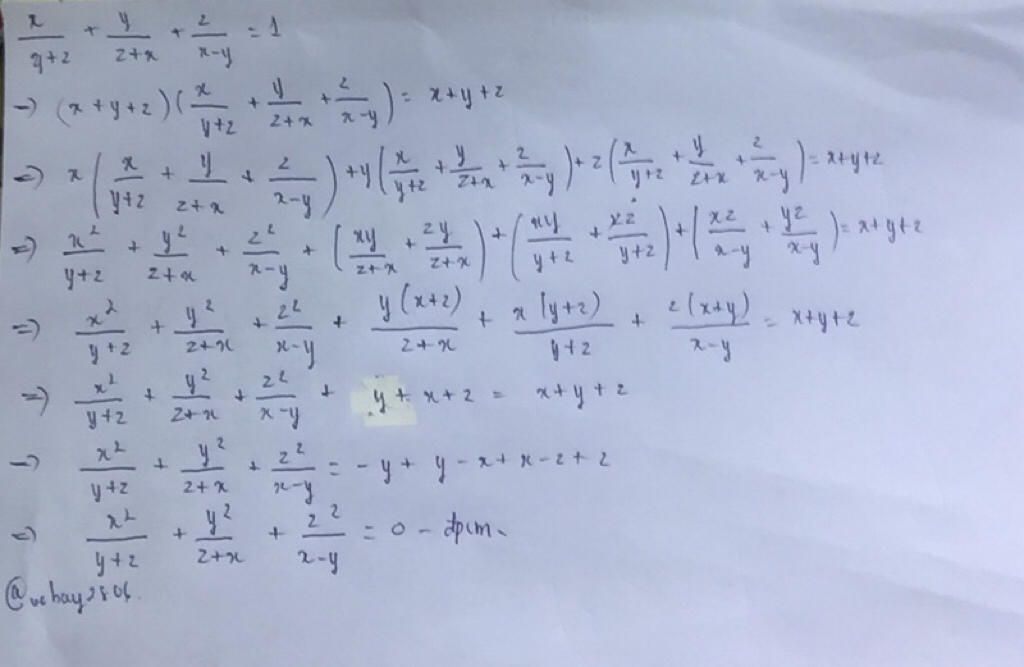 x/(y+z) + y/(z+x) + z/(x-y) = 1
→ (x+y+z)(x/(y+z) + y/(z+x) + z/(x-y)) = x+y+z
⇒ x(x/(y+z) + y/(z+x) + z/(x-y)) + y(x/(y+z) + y/(z+x) + z/(x-y)) + z(x/(y+z) + y/(z+x) + z/(x-y)) = x+y+z
⇒ x²/(y+z) + y²/(z+x) + z²/(x-y) + (xy/(z+x) + zy/(z+x)) + (xy/(y+z) + xz/(y+z)) + (xz/(x-y) + yz/(x-y)) = x+y+z
⇒ x²/(y+z) + y²/(z+x) + z²/(x-y) + y(x+z)/(z+x) + x(y+z)/(y+z) + z(x+y)/(x-y) = x+y+z
⇒ x²/(y+z) + y²/(z+x) + z²/(x-y) + y+x+z = x+y+z
→ x²/(y+z) + y²/(z+x) + z²/(x-y) = -y+y-x+x-z+z
⇒ x²/(y+z) + y²/(z+x) + z²/(x-y) = 0 - đpcm.